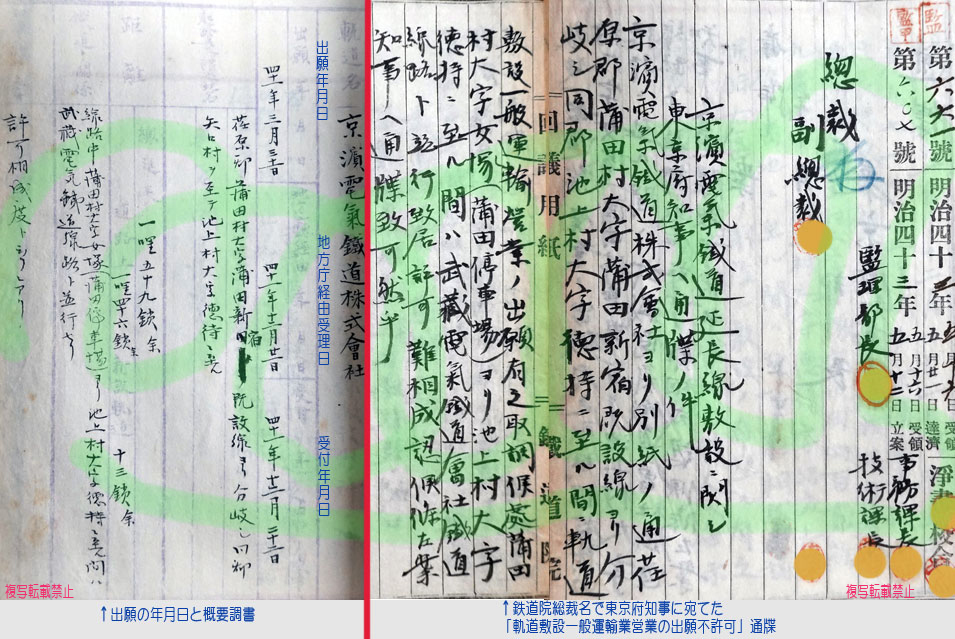 第六六一號 明治四十三年
五月廿一日達濟
五月十六日受領
淨書 校合
第六〇七號 明治四十三年 五月十二日立案
總裁
副總裁
監理部長
事務課長
技術課長
京濱電氣鐵道延長線敷設ニ関シ
東京府知事ヘ通牒ノ件
京濱電氣鐵道株式會社ヨリ別紙ノ通荏
原郡蒲田村大字蒲田新宿既設線ヨリ分
岐シ同郡池上村大字徳持ニ至ル間ニ軌道
回議用紙 鐵道院
敷設一般運輸營業ノ出願有之取調候處蒲田
村大字女塚(蒲田停車場)ヨリ池上村大字
徳持ニ至ル間ハ武藏電氣鐵道會社鐵道
線路ト並行致居許可難相成認候條左案
知事ヘ通牒致可然乎
京濱電氣鐵道株式會社
出願年月日 地方庁経由受理日 受付年月日
四十一年十二月廿日
荏原郡蒲田村大字蒲田新宿既設線ヨリ分岐シ同郡
矢口村ヲ至テ池上村大字徳待ニ
一哩五十九鎖余
十三鎖余
線路中蒲田村大字女塚(蒲田停車場)ヨリ池上村大字徳持ニ至間ハ
武蔵電気鉄道線路ト並行
複写転載禁止
複写転載禁止
↑出願の年月日と概要調書
↑鉄道院総裁名で東京府知事に宛てた
「軌道敷設一般運輸業営業の出願不許可」通牒